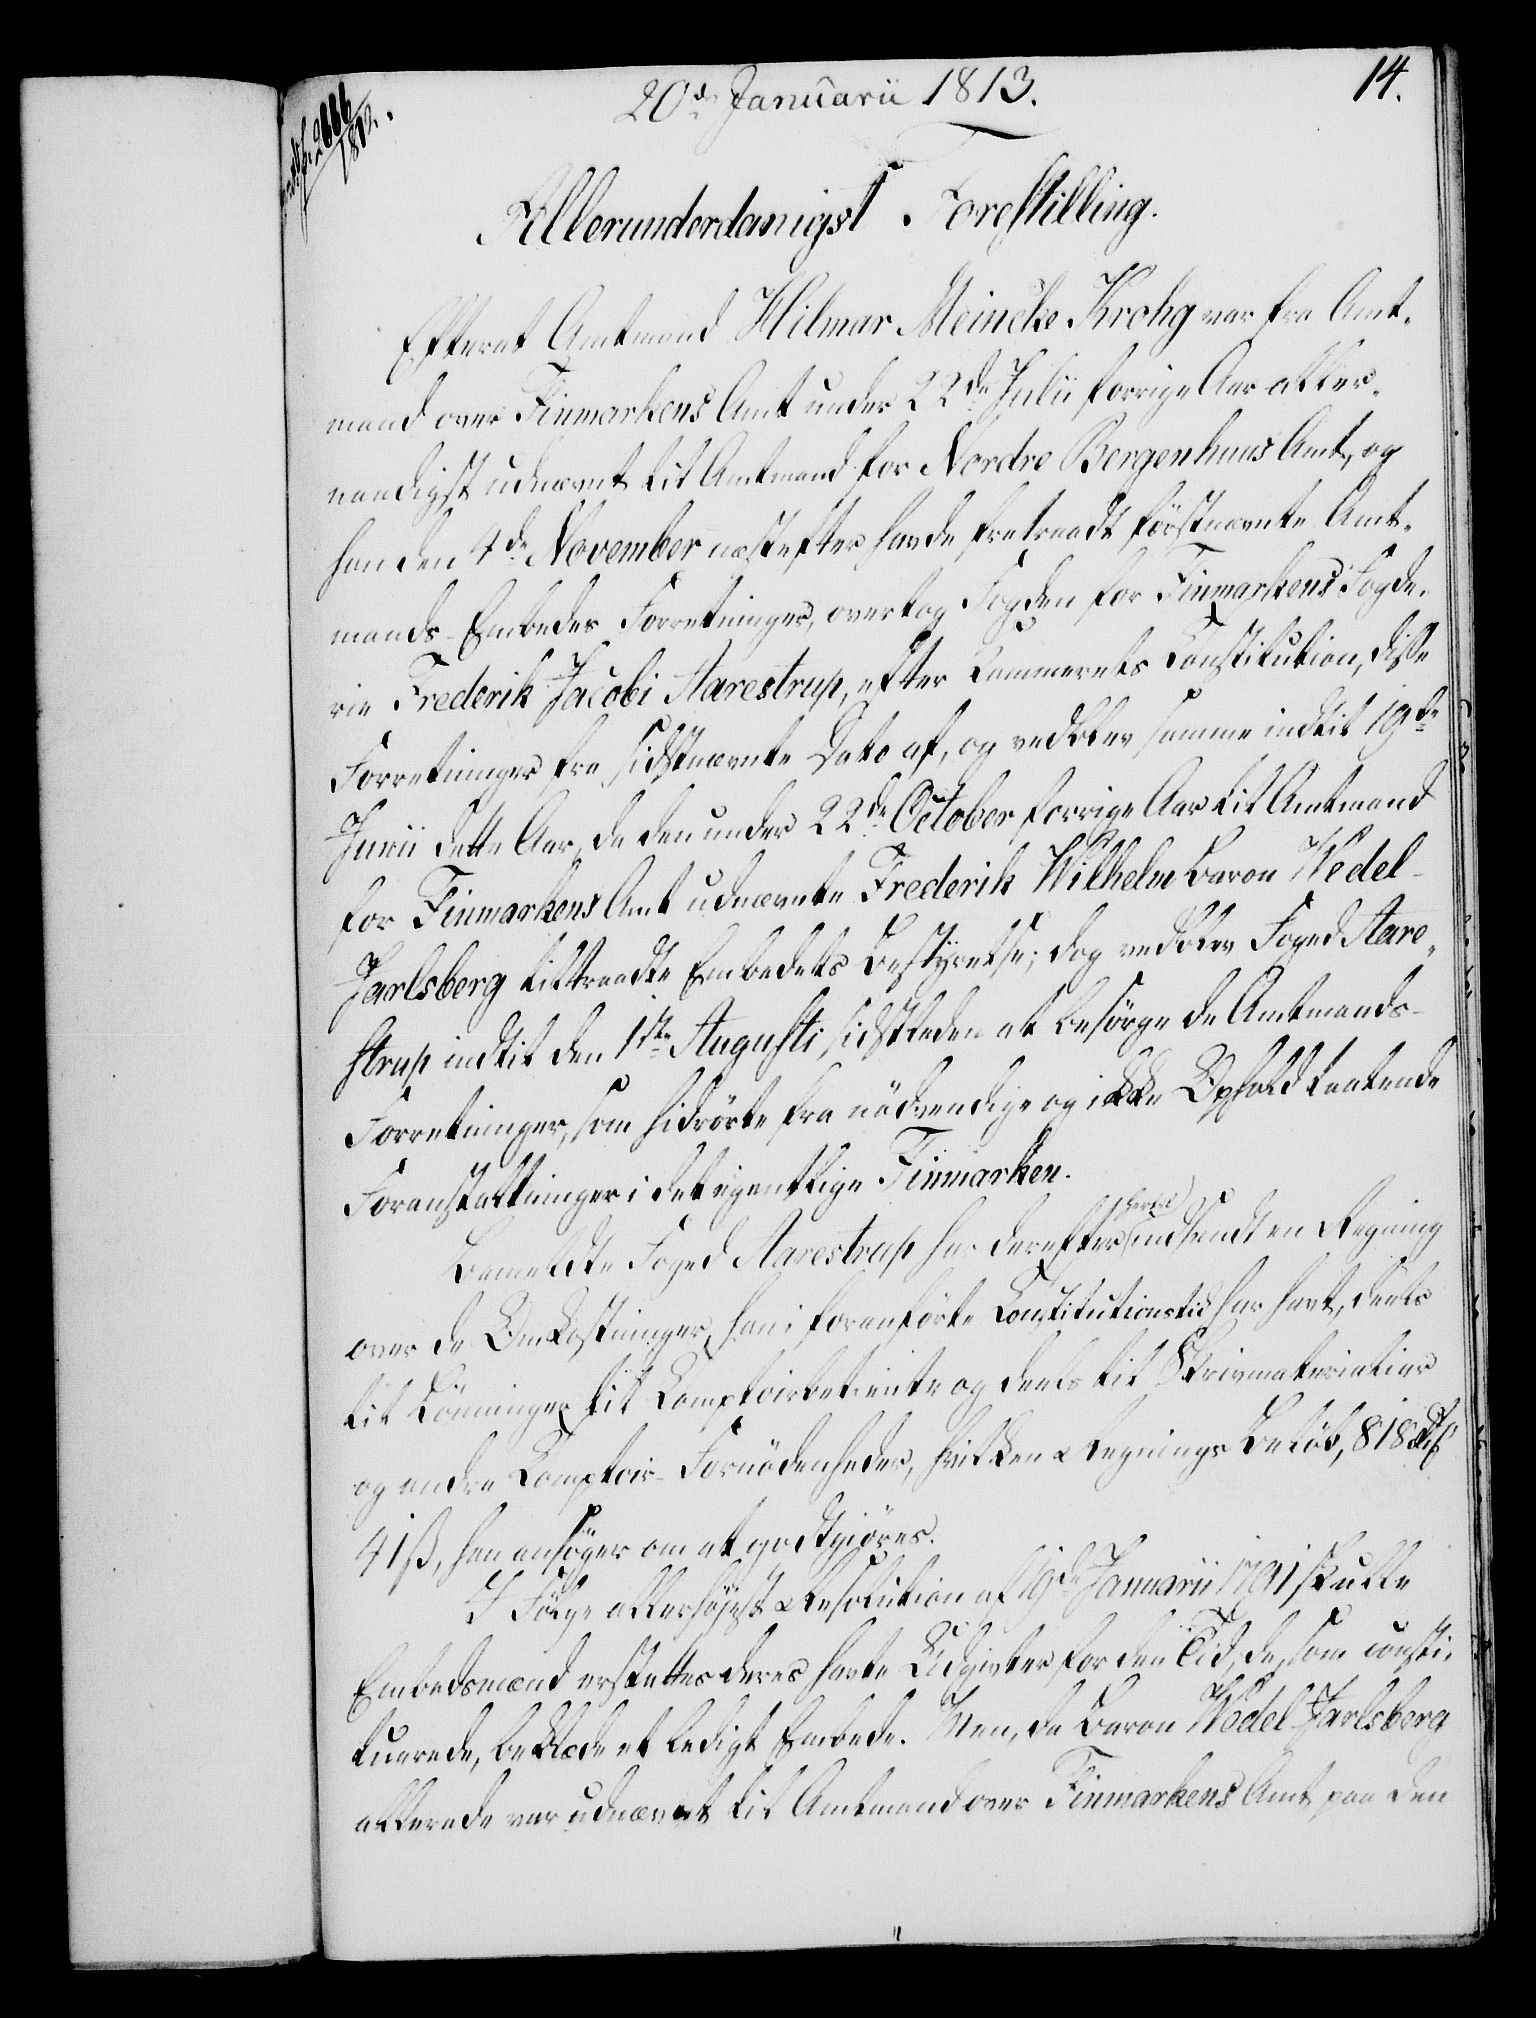 20de Januarii 1813.
14.
2686
1812.
Allerunderdanigst Forestilling.
Efterat Amtmand Hilmar Meincke Krohg var fra Amt-
mand over Finmarkens Amt under 22de Julii forrige Aar aller-
naadigst udnævnt til Amtmand for Nordre Bergenhuus Amt, og
han den 4de November næstefter havde fratraadt førstnævnte Amt-
mands-Embedes Forretninger, overtog Fogden for Finmarkens Fogde-
rie Frederik Jacobi Aarestrup, efter Kammerets Constitution, disse
Forretninger fra sidstnævnte Dato af, og vedblev samme indtil 19de
Junii dette Aar, da den under 22de October forrige Aar til Amtmand
for Finmarkens Amt udnævnte Frederik Wilhelm Baron Wedel-
Jarlsberg tiltraadte Embedets Bestyrelse; dog vedblev Foged Aare-
strup indtil den 1ste Augusti sidstleden at besørge de Amtmands-
Forretninger, som hidrørte fra nødvendige og ikke Ophold taalende
Foranstaltninger i det egentlige Finmarken.
Bemeldte Foged Aarestrup har derefter (hertil) indsendt en Regning
over de Omkostninger, han i foranførte Constitutionstid har havt, deels
til Lønninger til Comptoirbetiente og deels til Skrivmaterialier
og andre Comptoir-Fornødenheder, hvilken Regnings Beløb, 818 Rd
41 ß, han ansøger om at godtgiøres.
I Følge allerhøjest Resolution af 19de Januarii 1791 skulle
Embedsmænd erstattes deres havte Udgivter for den Tid, de, som consti-
tuerede, beklæde et ledigt Embede. Men, da Baron Wedel Jarlsberg
allerede var udnævnt til Amtmand over Finmarkens Amt paa den